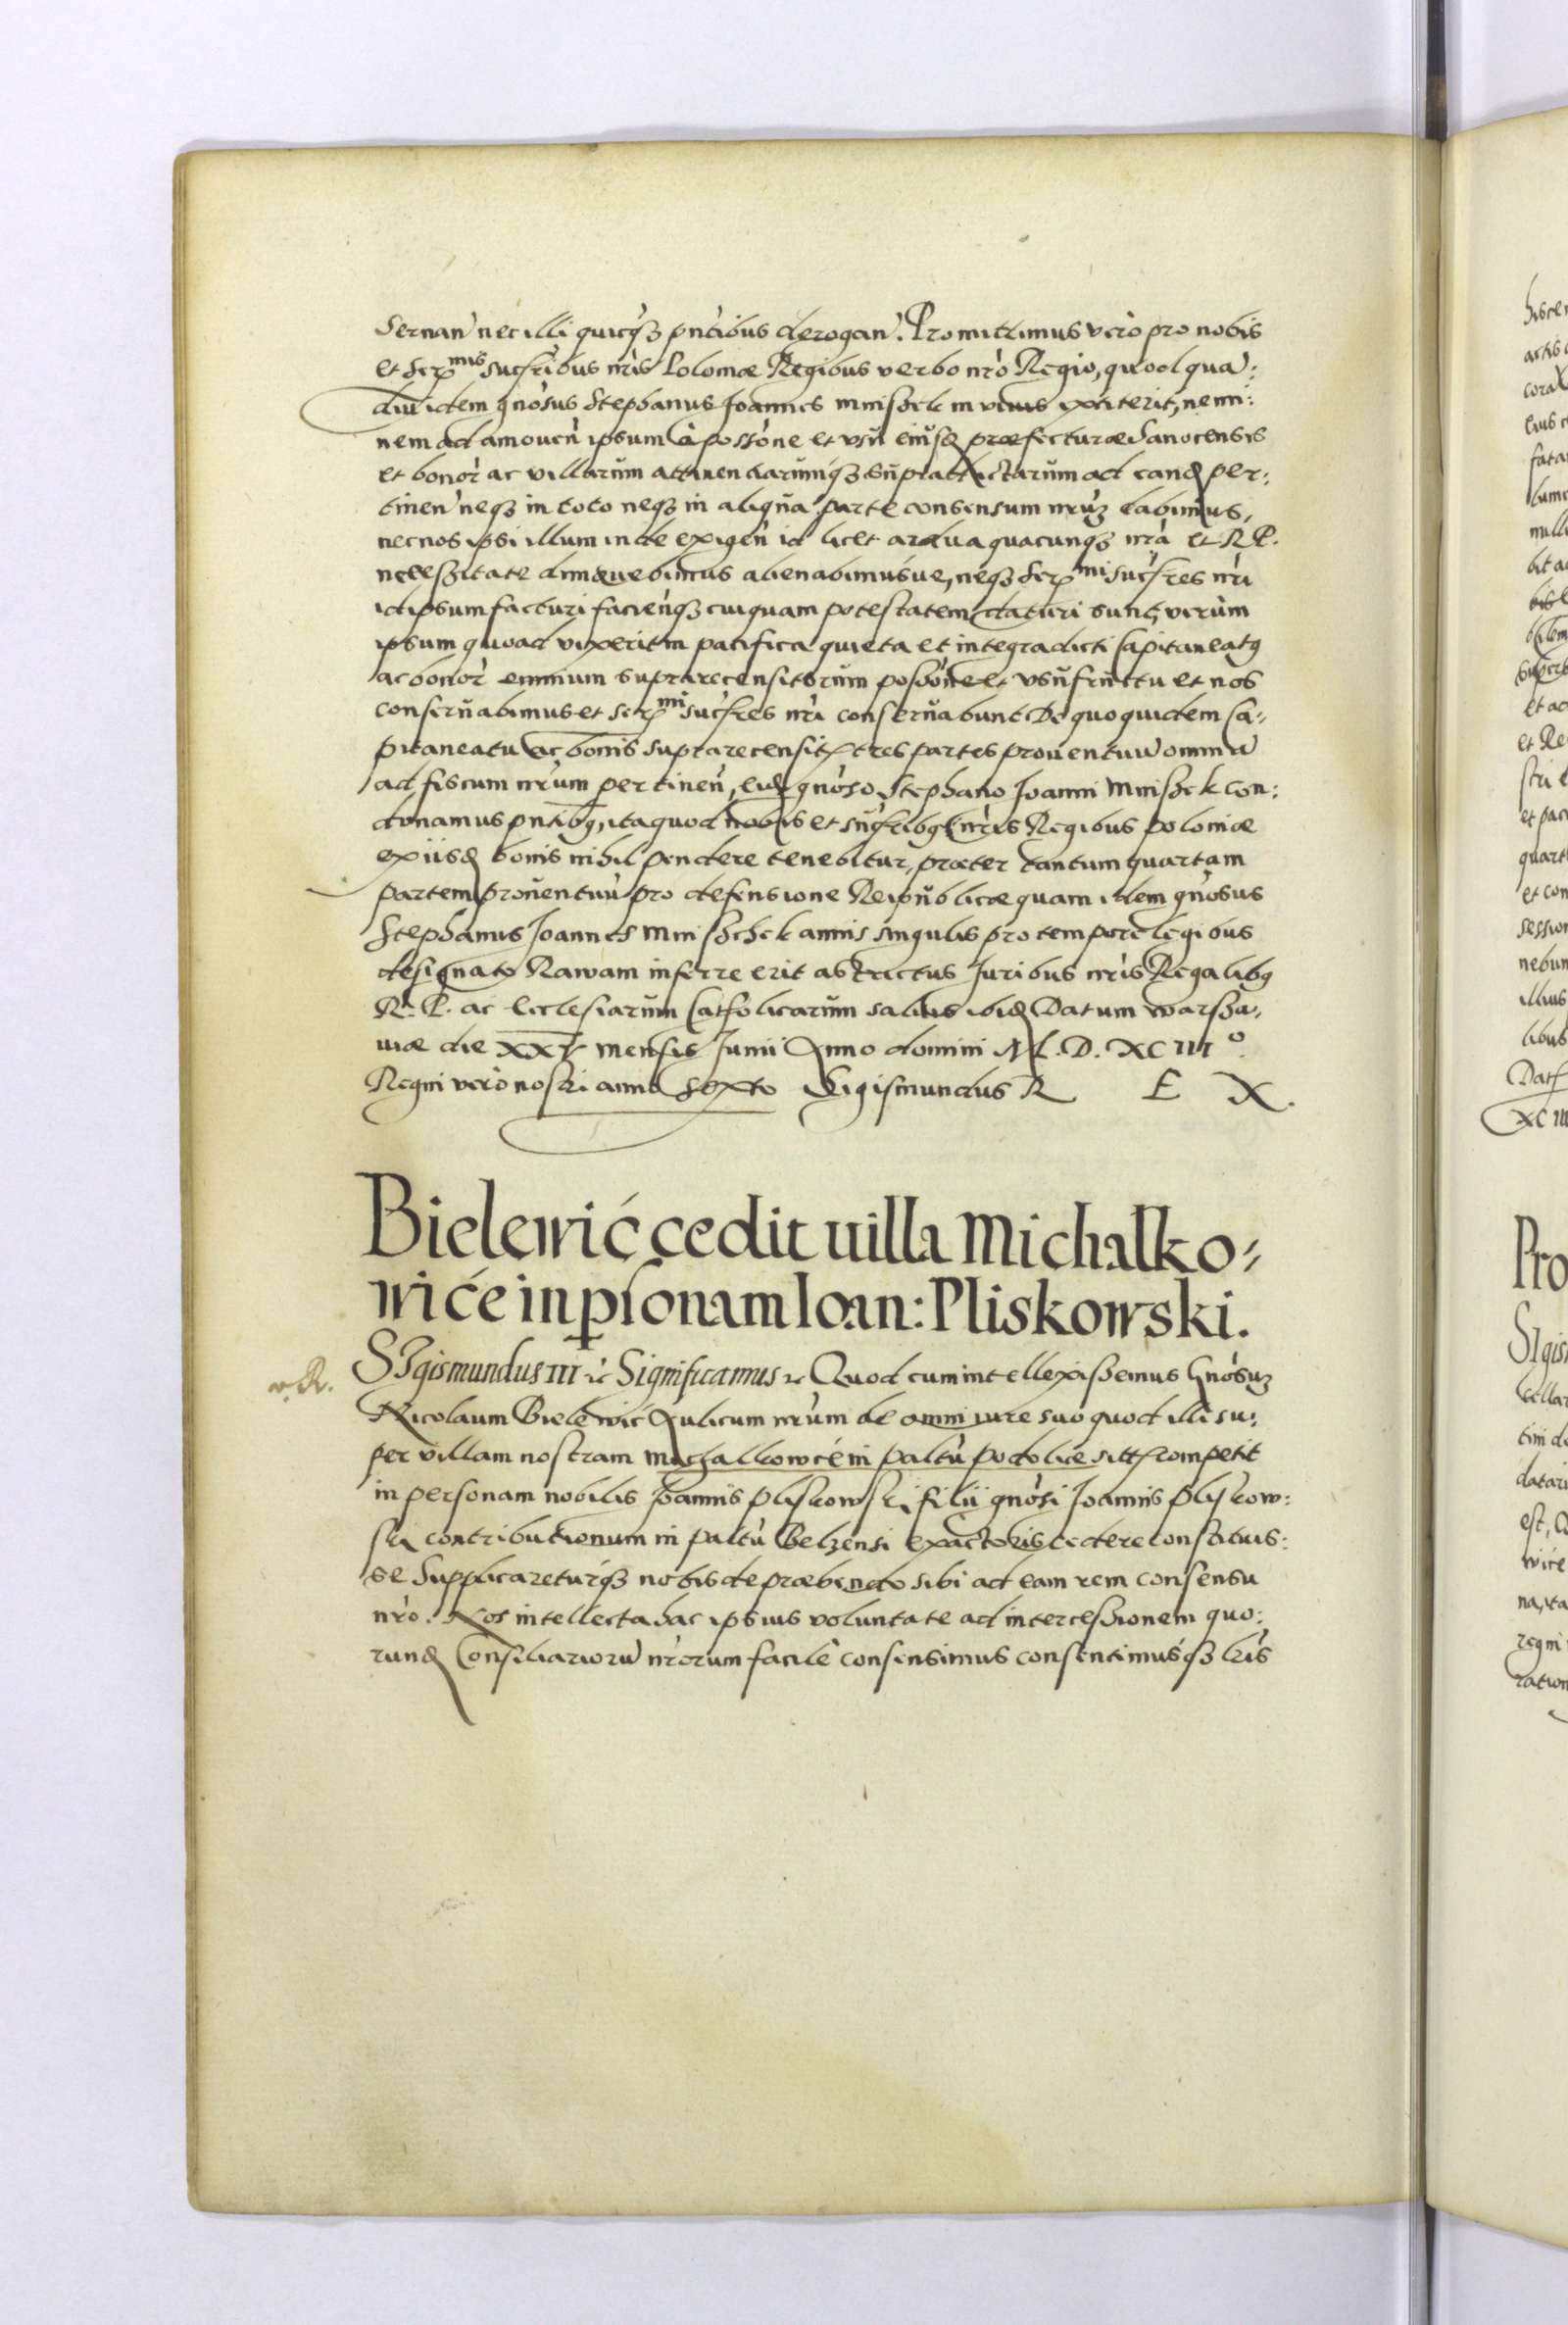 sernan̄ nec illi quicq̃ꝫ pn̄tibus derogan̄. Promittimus verò pro nobis
et Serꝫmis succr̄ibus nr̄is Poloniæ Regibus verbo nr̄o Regio, quod qua:
diu idem gnosus Stephanus Joannes Mniszek in vivis extiterit, nemi:
nem ad amouen̄ ipsum à possone et vsu eiusꝗ præfecturæ Sanocensis
et bonor̄ ac villarum attinentiarumqꝫ supradictarum ad eandꝫ per:
tinen̄ neqꝫ in toto neqꝫ in aliqua parte consensum nr̄uꝫ dabimus,
nec nos ipsi illum inde exigen̄ id licet ardua quacunqꝫ nr̄a et R.P.
necessitate dimouebimus alienabimusue, neqꝫ Serꝫmi succr̄es nr̄i
id ipsum facturi facienqꝫ cuiquam potestatem daturi sunt, verùm
ipsum quoad vixerit in pacifica quieta et integra dicti Capitaneatꝰ
ac bonor̄ omnium suprarecensitorum possone et vsufructu et nos
conseruabimus et Serꝫmi succr̄es nr̄i conseruabunt De quo quidem Ca:
pitaneatu ac bonis suprarecensitꝭ tres partes prouentuū omniū
ad fiscum nr̄um pertinen̄, eidꝫ gnoso Stephano Joanni Mniszek con:
donamus pn̄tibꝰ, ita quod nobis et sucr̄ibꝰ nr̄is Regibus Poloniæ
ex iisdꝫ bonis nihil pendere tenebitur, præter tantum quartam
partem prouentuū pro defensione Reipublicæ quam idem gnosus
Stephanus Joannes Mniszchek annis singulis pro tempore legibus
designato Rawam inferre erit astrictus Juribus nr̄is Regalibꝰ
R.P. ac Ecclesiarum Catholicarum saluis ibidꝫ Datum Warsza:
uiæ die XXV mensis Junii Anno domini M.D.XCIII°
Regni verò nostri anno Sexto Sigismundus R E X.
Bielewić cedit uilla Michalko:
wiće in psonam Ioan: Pliskowski.
v. R.
SIgismundus III ꝛc Significamus ꝛc Quod cum intellexissemus Gnosuꝫ
Nicolaum Bielewić Aulicum nr̄um de omni iure suo quod illi su:
per villam nostram Michalkowcé in Paltū Podoliæ sittꝭ competit
in personam nobilis Joannis Pliskowski filii gnosi Joannis Pliskow:
ski contributionum in Paltū Belzensi exactoris cedere constituis:
se Supplicareturqꝫ nobis de præbendo sibi ad eam rem consensu
nr̄o. Nos intellecta hac ipsius voluntate ad intercessionem quo:
rundꝫ Consiliarioru nr̄orum facilè consensimus consentimusqꝫ lr̄is